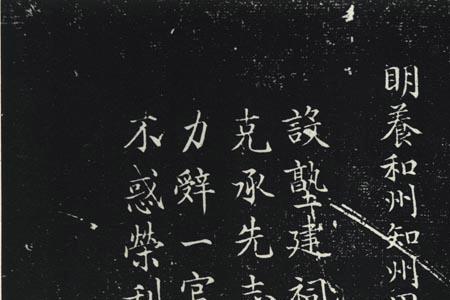 明養和州知州
設塾建祠
克承先志
力辭一官
不惑榮利